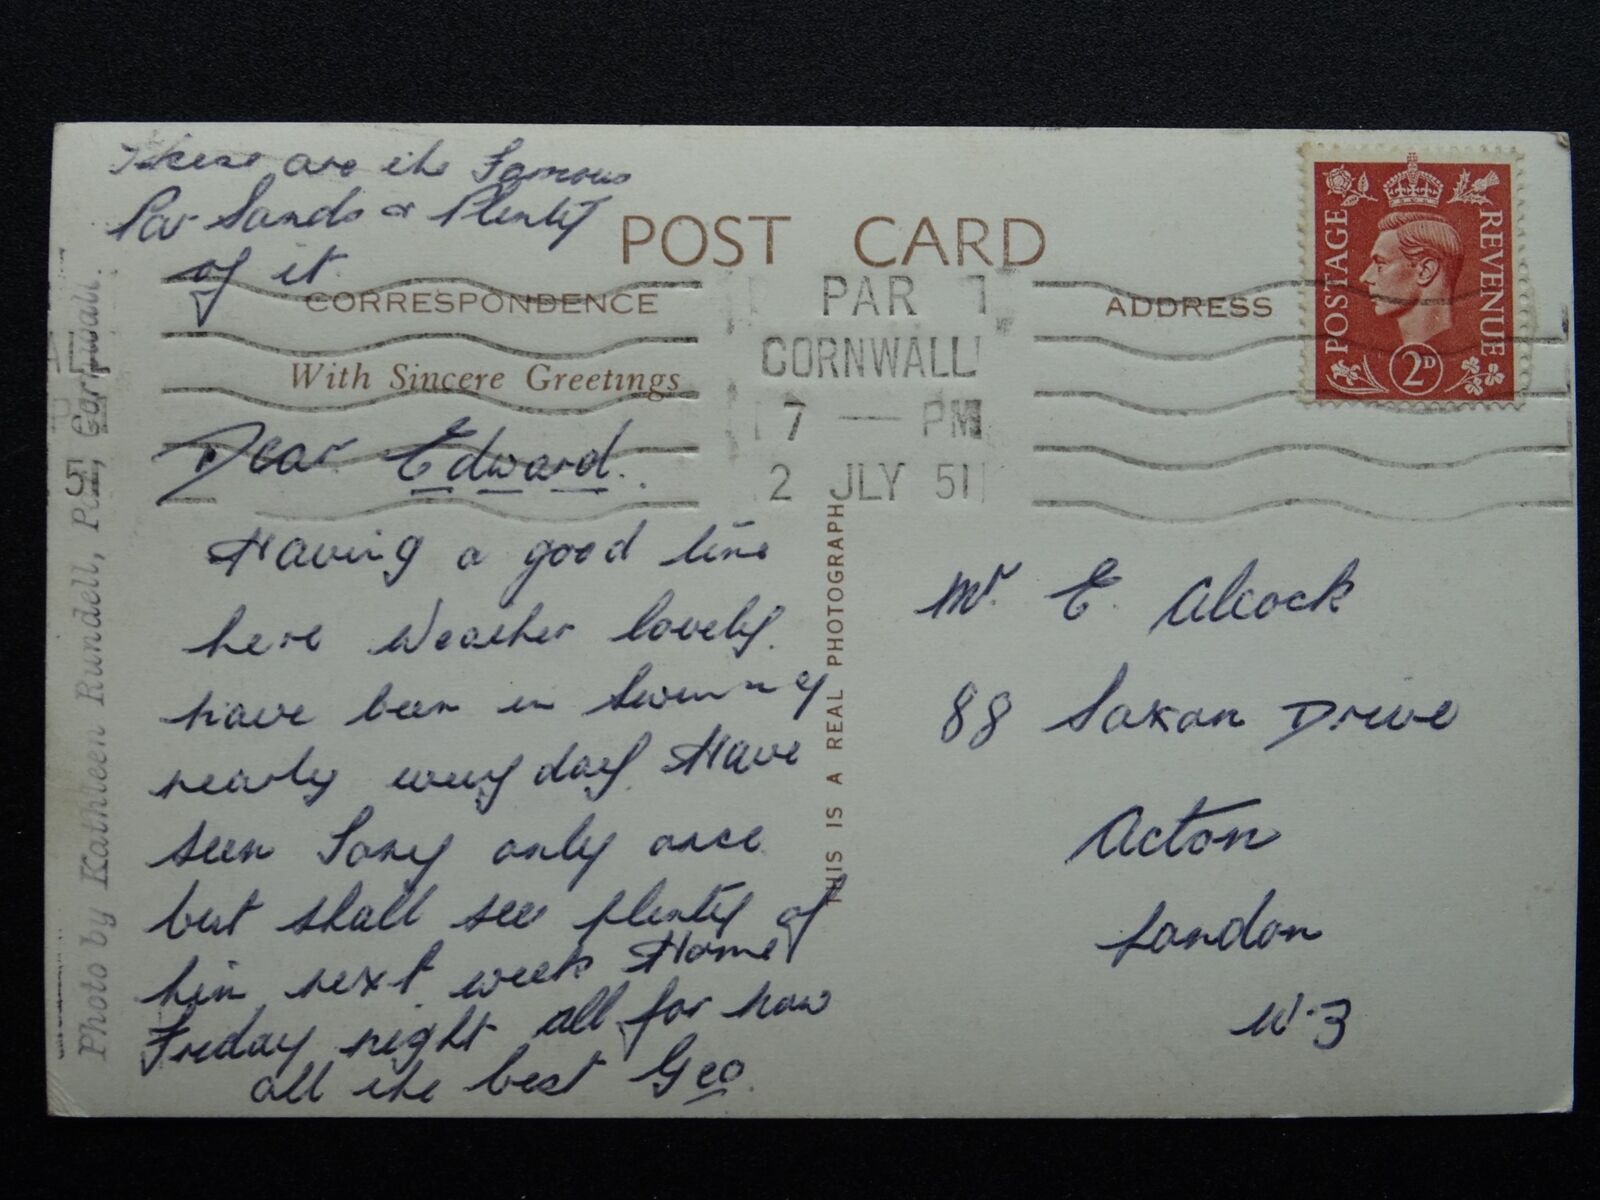 These are the Famous
Par Sands & Plenty
of it.
POST CARD
CORRESPONDENCE
ADDRESS
With Sincere Greetings
PAR
CORNWALL
7 — PM
2 JLY 51
POSTAGE
REVENUE
2D
Dear Edward.
Having a good time
here Weather lovely.
have been in Swimming
nearly every day. Have
seen Tony only once
but shall see plenty of
him next week Home
Friday night all for now
all the best Geo.
Mr. E. Alcock
88 Saxon Drive
Acton
London
W.3
THIS IS A REAL PHOTOGRAPH
Photo by Kathleen Rundell, Par, Cornwall.